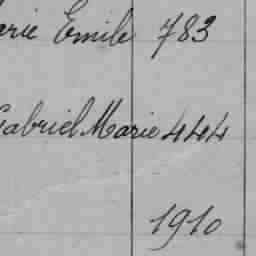 arie Emile 783
Gabriel Marie 444
1910